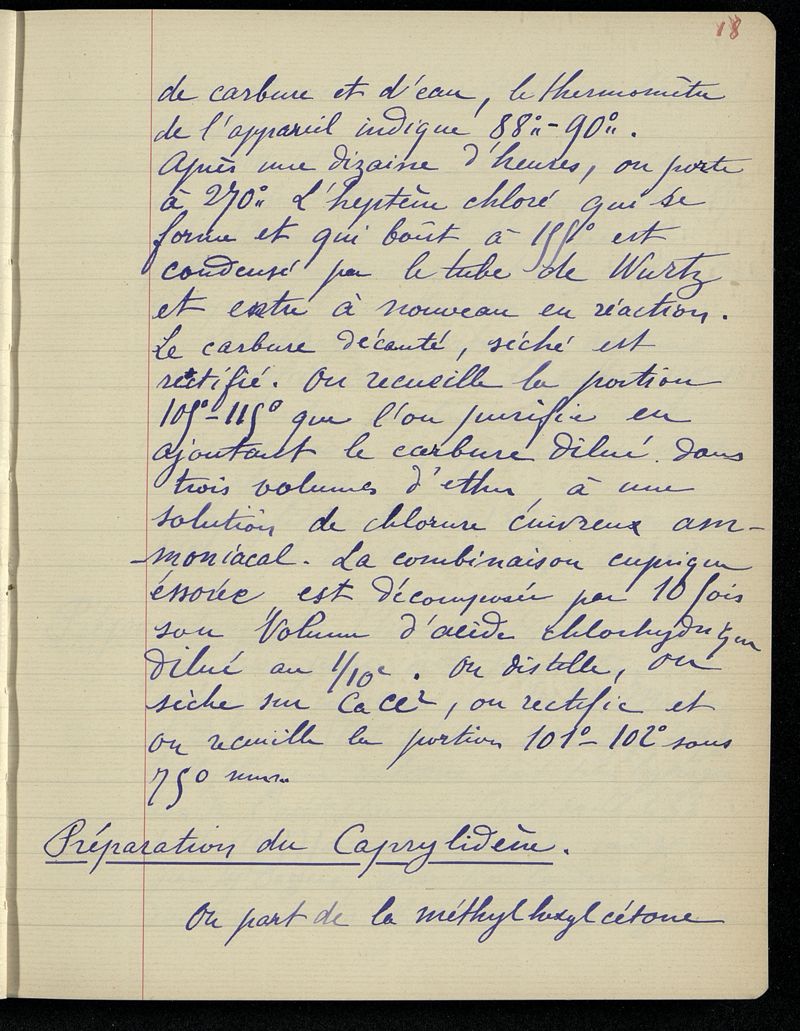 18
de carbure et d'eau, le thermomètre
de l'appareil indique 88°-90°.
Après une dizaine d'heures, on porte
à 270° L'heptène chloré qui se
forme et qui boût à 155° est
condensé par le tube de Wurtz
et entre à nouveau en réaction.
Le carbure décanté, séché est
rectifié. On recueille la portion
105°-115° que l'on purifie en
ajoutant le carbure dilué dans
trois volumes d'ether, à une
solution de chlorure cuivreux am-
-moniacal. La combinaison cuprique
éssorée est décomposée par 10 fois
son Volume d'acide chlorhydrique
dilué au 1/10e. On distille, on
sèche sur CaCl2, on rectifie et
on recueille la portion 101°-102° sous
750 mm.
Préparation du Caprylidène.
On part de la méthylhexylcétone